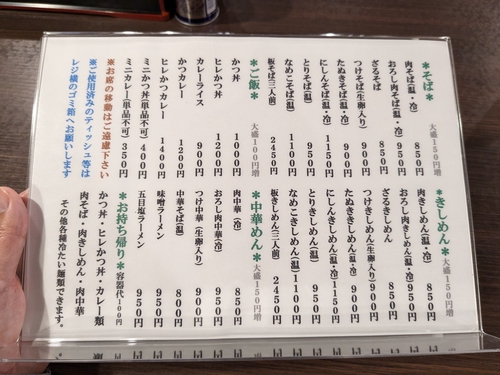 *そば* 大盛150円増
肉そば(温・冷) 850円
おろし肉そば(温・冷) 950円
ざるそば 850円
つけそば(生卵入り) 900円
たぬきそば(温・冷) 900円
にしんそば(温・冷) 1150円
とりそば(温) 950円
なめこそば(温) 1100円
板そば(三人前) 2450円
*ご飯* 大盛100円増
かつ丼 1000円
ヒレかつ丼 1200円
カレーライス 900円
かつカレー 1200円
ヒレかつカレー 1400円
ミニかつ丼(単品不可) 400円
ミニカレー(単品不可) 350円
※お席の移動はご遠慮下さい
※ご使用済みのティッシュ等は
レジ横のゴミ箱へお願いします
*きしめん* 大盛150円増
肉きしめん(温・冷) 850円
おろし肉きしめん(温・冷) 950円
ざるきしめん 850円
つけきしめん(生卵入り) 900円
たぬききしめん(温・冷) 900円
にしんきしめん(温・冷) 1150円
とりきしめん(温) 950円
なめこきしめん(温) 1100円
板きしめん(三人前) 2450円
*中華めん* 大盛150円増
肉中華(温・冷) 850円
おろし肉中華(冷) 950円
つけ中華(生卵入り) 900円
中華そば(温) 800円
味噌ラーメン 950円
五目塩ラーメン 950円
*お持ち帰り* 容器代100円
かつ丼・ヒレかつ丼・カレー類
肉そば・肉きしめん・肉中華
その他各種冷たい麺類できます。